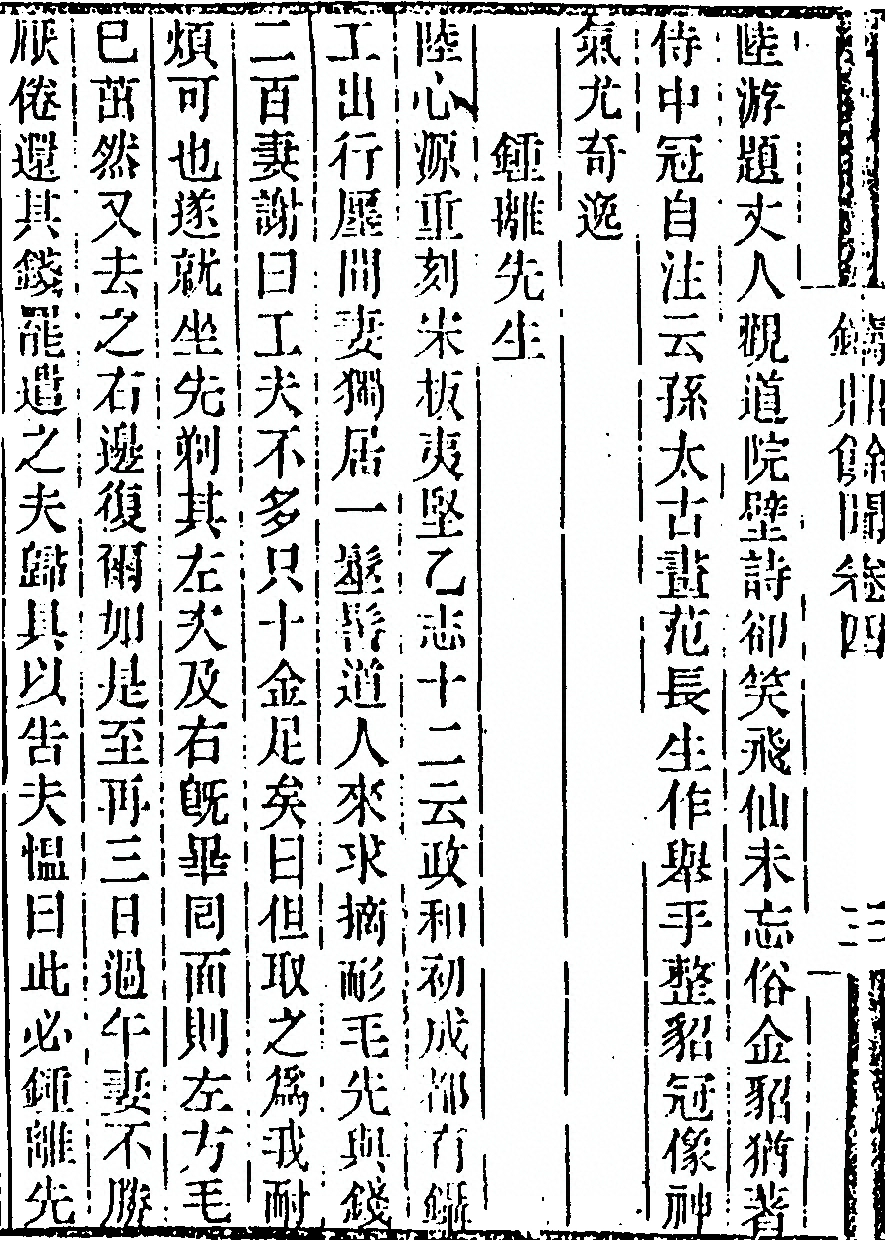 蠲川餘聞卷四 三
陸游題丈人觀道院壁詩卻笑飛仙未忘俗金貂猶著
侍中冠自注云孫太古畫范長生作舉手整貂冠像神
氣尤奇逸
鍾離先生
陸心源重刻宋板夷堅乙志十二云政和初成都有鑷
工出行廛間妻獨居一髽髻道人來求摘耏毛先與錢
二百妻謝曰工夫不多只十金足矣曰但取之爲我耐
煩可也遂就坐先剃其左次及右旣畢回面則左方毛
已茁然又去之右邊復爾如是至再三日過午妻不勝
厭倦還其錢罷遣之夫歸具以告夫愠曰此必鍾離先